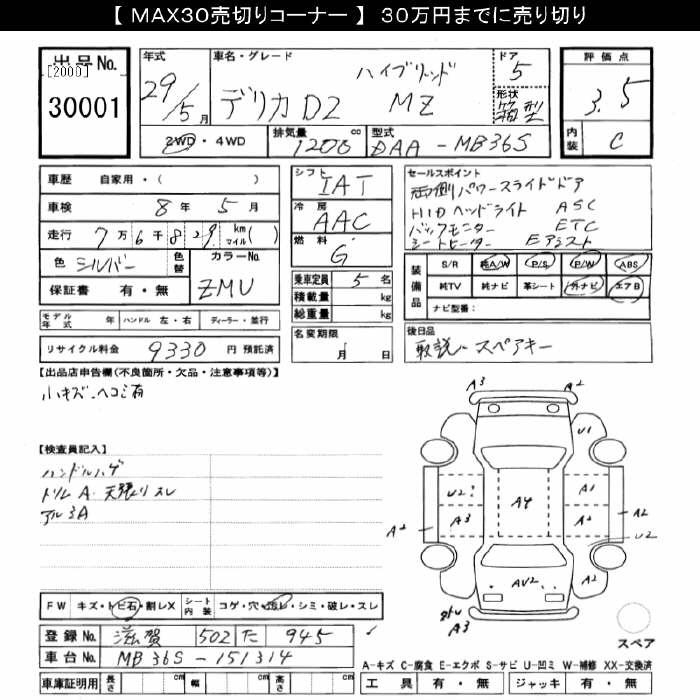 【 MAX30売切りコーナー 】 30万円までに売り切り
出品No.
[2000]
30001
年式
29/5月
車名・グレード
ハイブリッド
デリカD2 MZ
ドア
5
形状
箱型
評価点
3.5
内装
C
2WD・4WD
排気量
1200 cc
型式
DAA-MB36S
車歴 自家用・( )
車検 8年 5月
走行 7万6千829 km マイル( )
色 シルバー
色替
カラーNo.
ZMU
保証書 有・無
モデル年式 年 ハンドル 左・右 ディーラー・並行
リサイクル料金 9330 円 預託済
シフト
IAT
冷房
AAC
燃料
G
乗車定員 5名
積載量 kg
総重量 kg
名変期限
月 日
セールスポイント
両側パワースライドドア
HIDヘッドライト ASC
バックモニター ETC
シートヒーター Eアシスト
装備品
S/R 純A/W P/S P/W ABS
純TV 純ナビ 革シート 外ナビ エアB
ナビ型番:
後日品
取説 スペアキー
【出品店申告欄(不良箇所・欠品・注意事項等)】
小キズ、ヘコミ有
【検査員記入】
ハンドルハゲ
トリムA 天張りスレ
アル3A
FW キズ・トビ石・割レX
シート内装 コゲ・穴・汚レ・シミ・破レ・スレ
登録No. 滋賀 502 た 945
車台No. MB36S-151314
車庫証明用 長さ cm 幅 cm 高さ cm
A3 A2
U1
U2 A4 A1
A2 A3 A2 A2
U2
AU2 A2
A3
スペア
A-キズ C-腐食 E-エクボ S-サビ U-凹ミ W-補修 XX-交換済
工具 有・無 ジャッキ 有・無